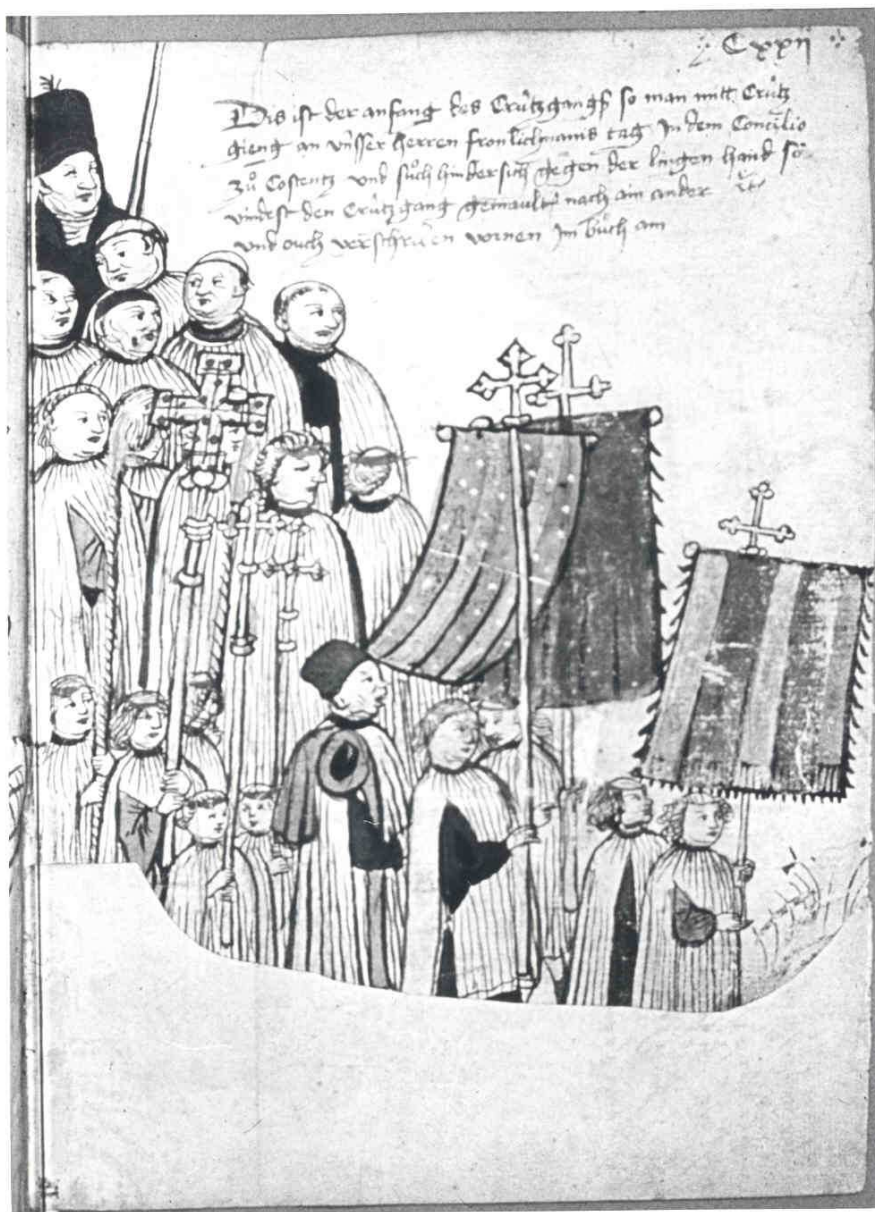 Cxxij
Dis ist der anfang des Crützgangs so man mitt Crütz
gieng an vnsser herren fronlichnams tag In dem Concilio
zů Costentz vnd sůch hindersich gegen der lingen hand so
vindest den Crützgang gemault nach ain ander
vnd ouch verschriben vornen Im bůch am